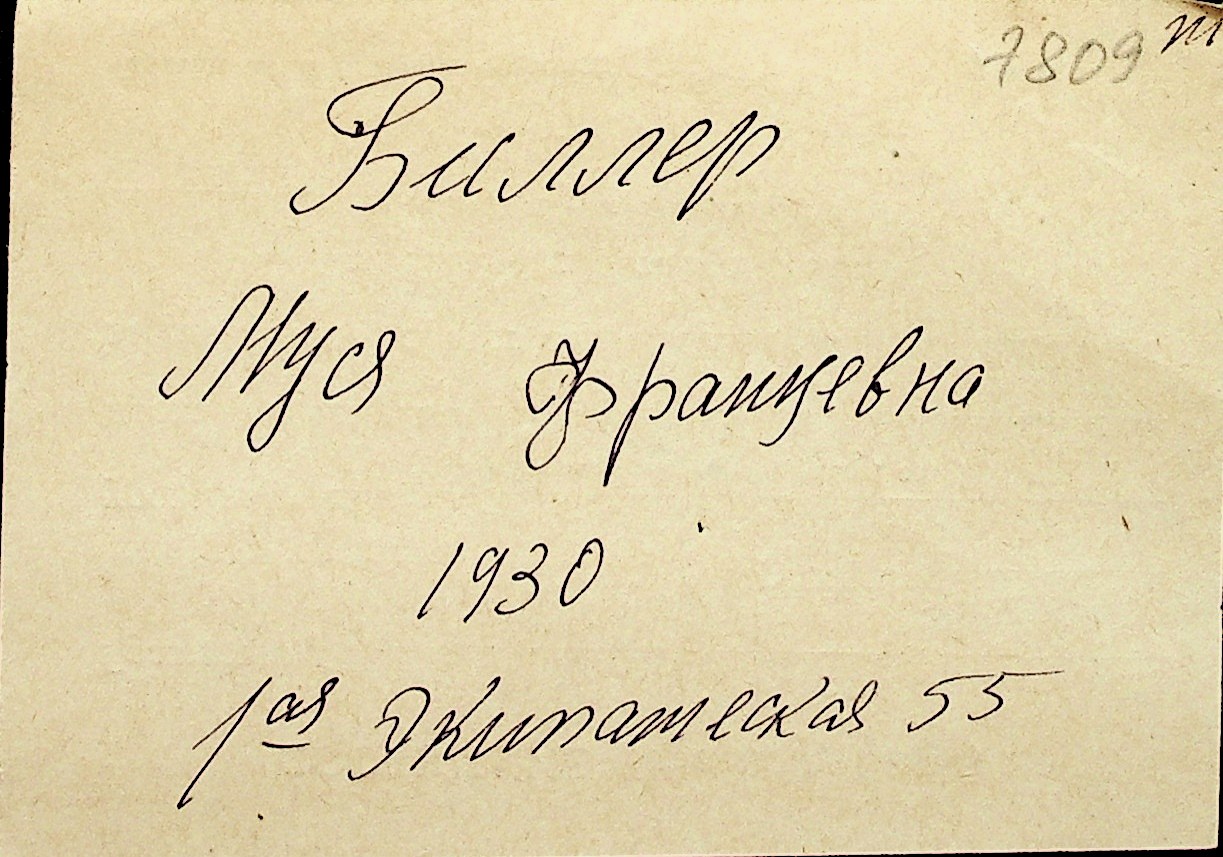 7809 т
Биллер
Муся Францевна
1930
1ая Экипашеская 55